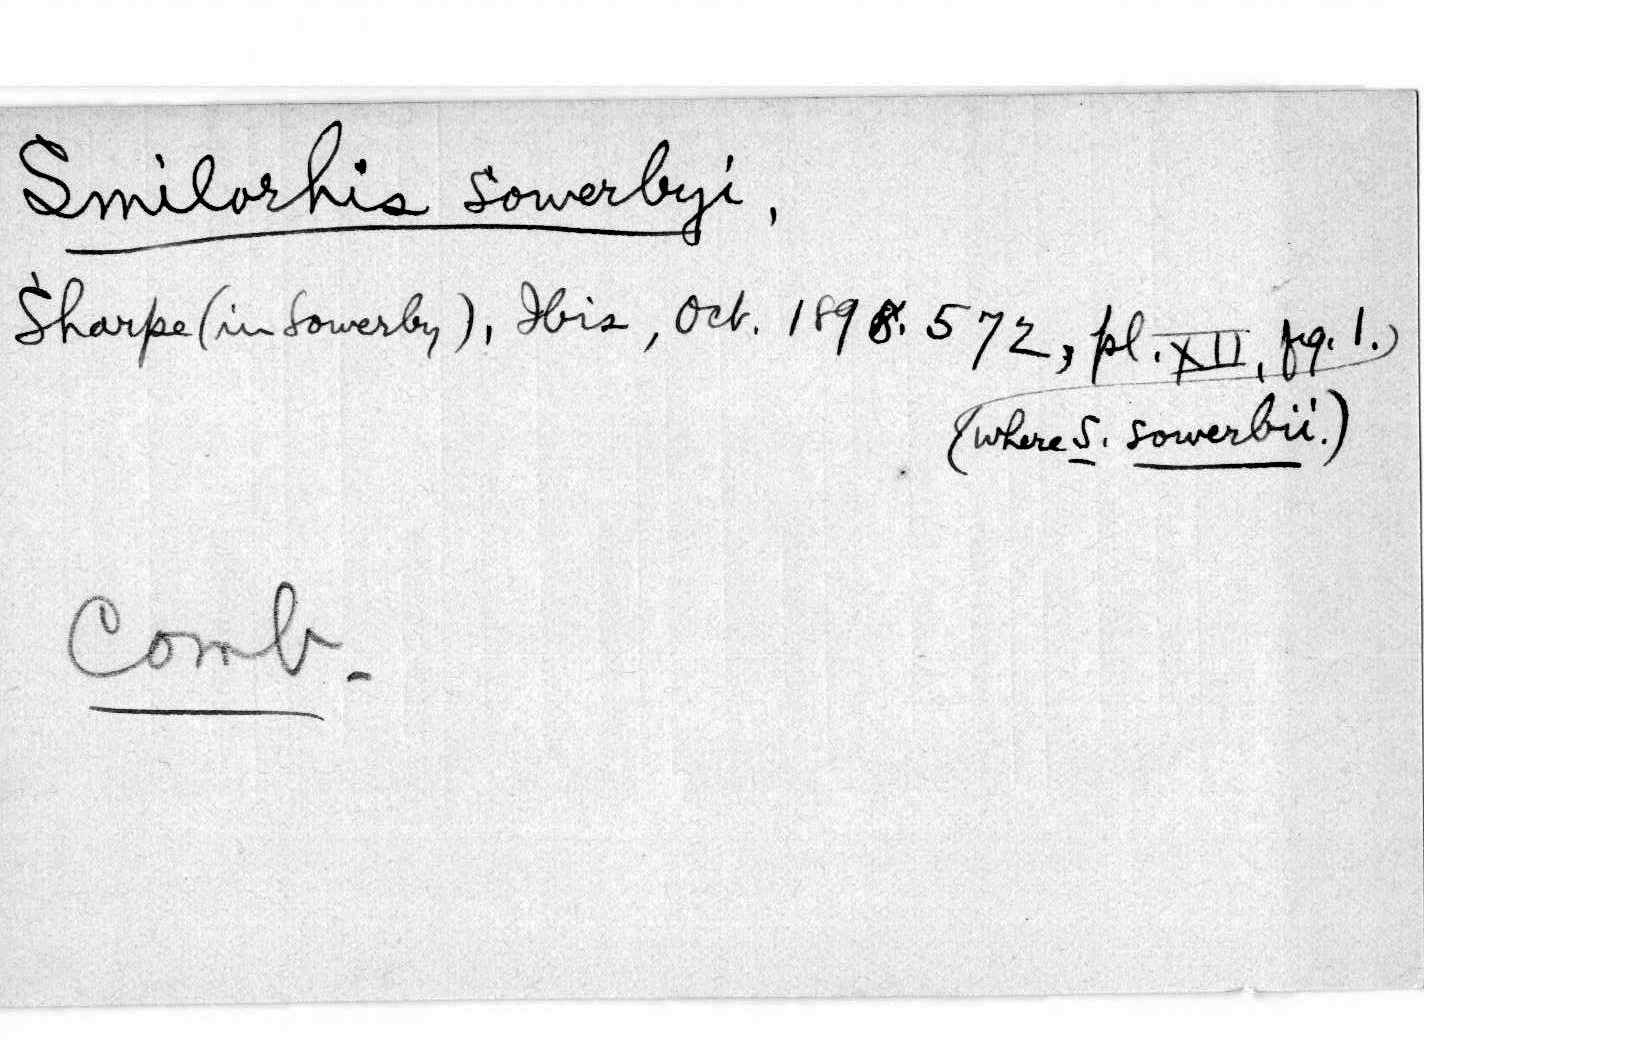 Smilorhis sowerbyi,
Sharpe (in Sowerby), Ibis, Oct. 1898. 572, pl. XII, fig. 1.)
(where S. sowerbii.)
Comb.